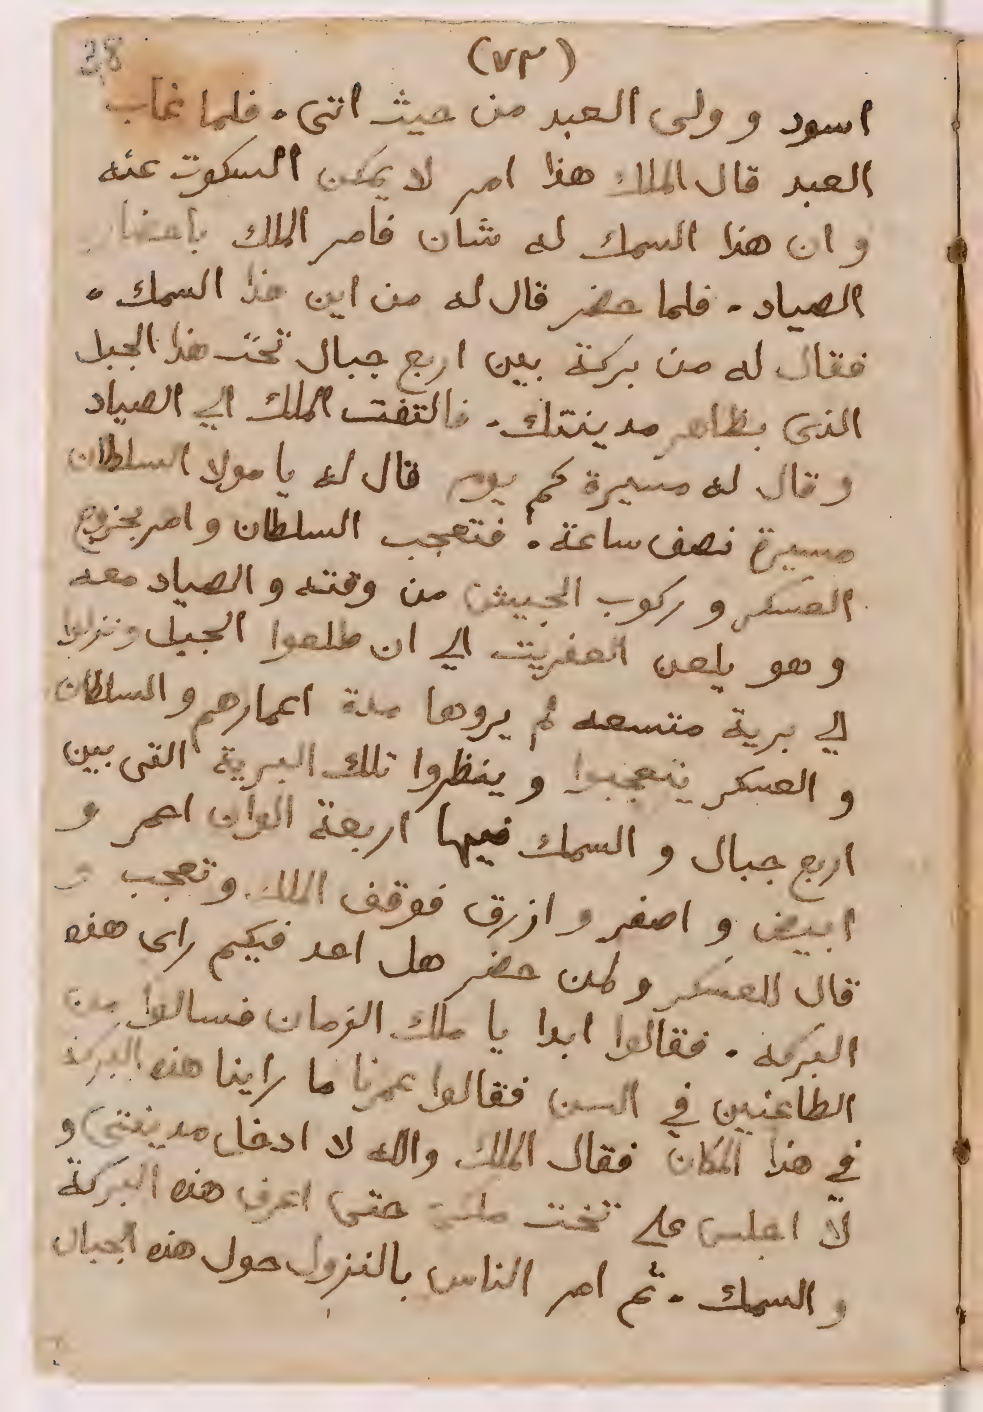 38
(٧٣)
اسود و ولى العبد من حيث اتى . فلما غاب
العبد قال الملك هذا امر لا يمكن السكوت عنه
و ان هذا السمك له شان فامر الملك باحضار
الصياد . فلما حضر قال له من اين هذا السمك .
فقال له من بركة بين اربع جبال تحت هذا الجبل
الذى بظاهر مدينتك . فالتفت الملك الي الصياد
و قال له مسيرة كم يوم قال له يا مولا السلطان
مسيرة نصف ساعة . فتعجب السلطان و امر بخروج
العسكر و ركوب الجيش من وقته و الصياد معه
و هو يلعن العفريت الي ان طلعوا الجبل و نزلوا
الي برية متسعه لم يروها مدة اعمارهم و السلطان
و العسكر يتعجبوا و ينظروا تلك البرية التى بين
اربع جبال و السمك فيها اربعة الوان احمر و
ابيض و اصفر و ازرق فوقف الملك و تعجب و
قال للعسكر و لمن حضر هل احد فيكم راى هذه
البركه . فقالوا ابدا يا ملك الزمان فسالوا من
الطاعنين في السن فقالوا عمرنا ما راينا هذه البركة
في هذا المكان فقال الملك والله لا ادخل مدينتى و
لا اجلس على تخت ملكى حتى اعرف هذه البركة
و السمك . ثم امر الناس بالنزول حول هذه الجبال